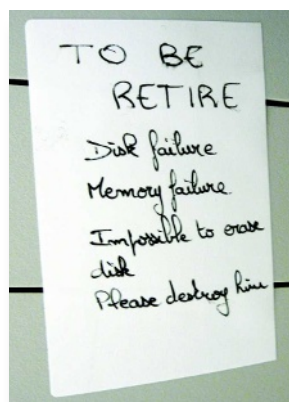 TO BE
RETIRE
Disk failure
Memory failure
Impossible to erase
disk
Please destroy him